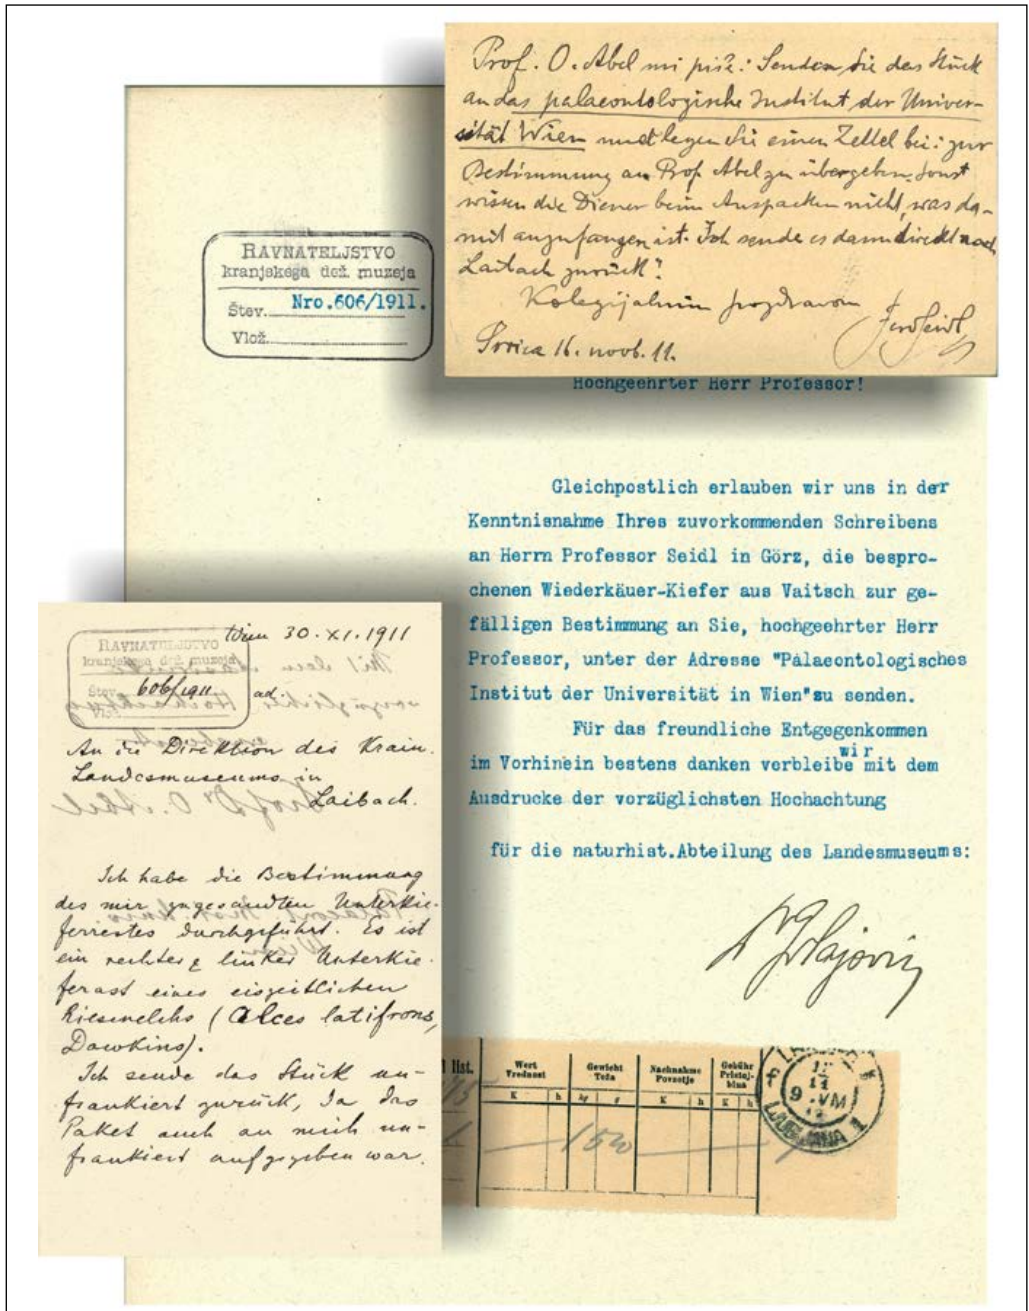 Prof. O. Abel mi piše: Senden Sie das Stück
an das palaeontologische Institut der Univer-
sität Wien und legen Sie einen Zettel bei: zur
Bestimmung an Prof. Abel zu übergeben. Sonst
wissen die Diener beim Auspacken nicht, was da-
mit anzufangen ist. Ich sende es dann direkt nach
Laibach zurück!
Kolegijalnim pozdravom
Ferd Seidl
Gorica 16. novb. 11.
RAVNATELJSTVO
kranjskega dež. muzeja
Štev. Nro.606/1911.
Vlož.
Hochgeehrter Herr Professor!
Gleichpostlich erlauben wir uns in der
Kenntnisnahme Ihres zuvorkommenden Schreibens
an Herrn Professor Seidl in Görz, die bespro-
chenen Wiederkäuer-Kiefer aus Vaitsch zur ge-
fälligen Bestimmung an Sie, hochgeehrter Herr
Professor, unter der Adresse "Palaeontologisches
Institut der Universität in Wien"zu senden.
Für das freundliche Entgegenkommen
im Vorhinein bestens danken verbleibe wir mit dem
Ausdrucke der vorzüglichsten Hochachtung
für die naturhist.Abteilung des Landesmuseums:
Wien 30.XI.1911
RAVNATELJSTVO
kranjskega dež. muzeja
Štev. 606/1911
ad.
An die Direktion des Krain.
Landesmuseums in
Laibach.
Ich habe die Bestimmung
des mir zugesandten Unterkie-
ferrestes durchgeführt. Es ist
ein rechter & linker Unterkie-
ferast eines eiszeitlichen
Riesenelchs (Alces latifrons,
Dawkins).
Ich sende das Stück un-
frankiert zurück, da das
Paket auch an mich un-
frankiert aufgegeben war.
Wert Vrednost
Gewicht Teža
Nachnahme Povzetje
Gebühr Pristoj-bina
K h kg g K h K h
LJUBLJANA 1